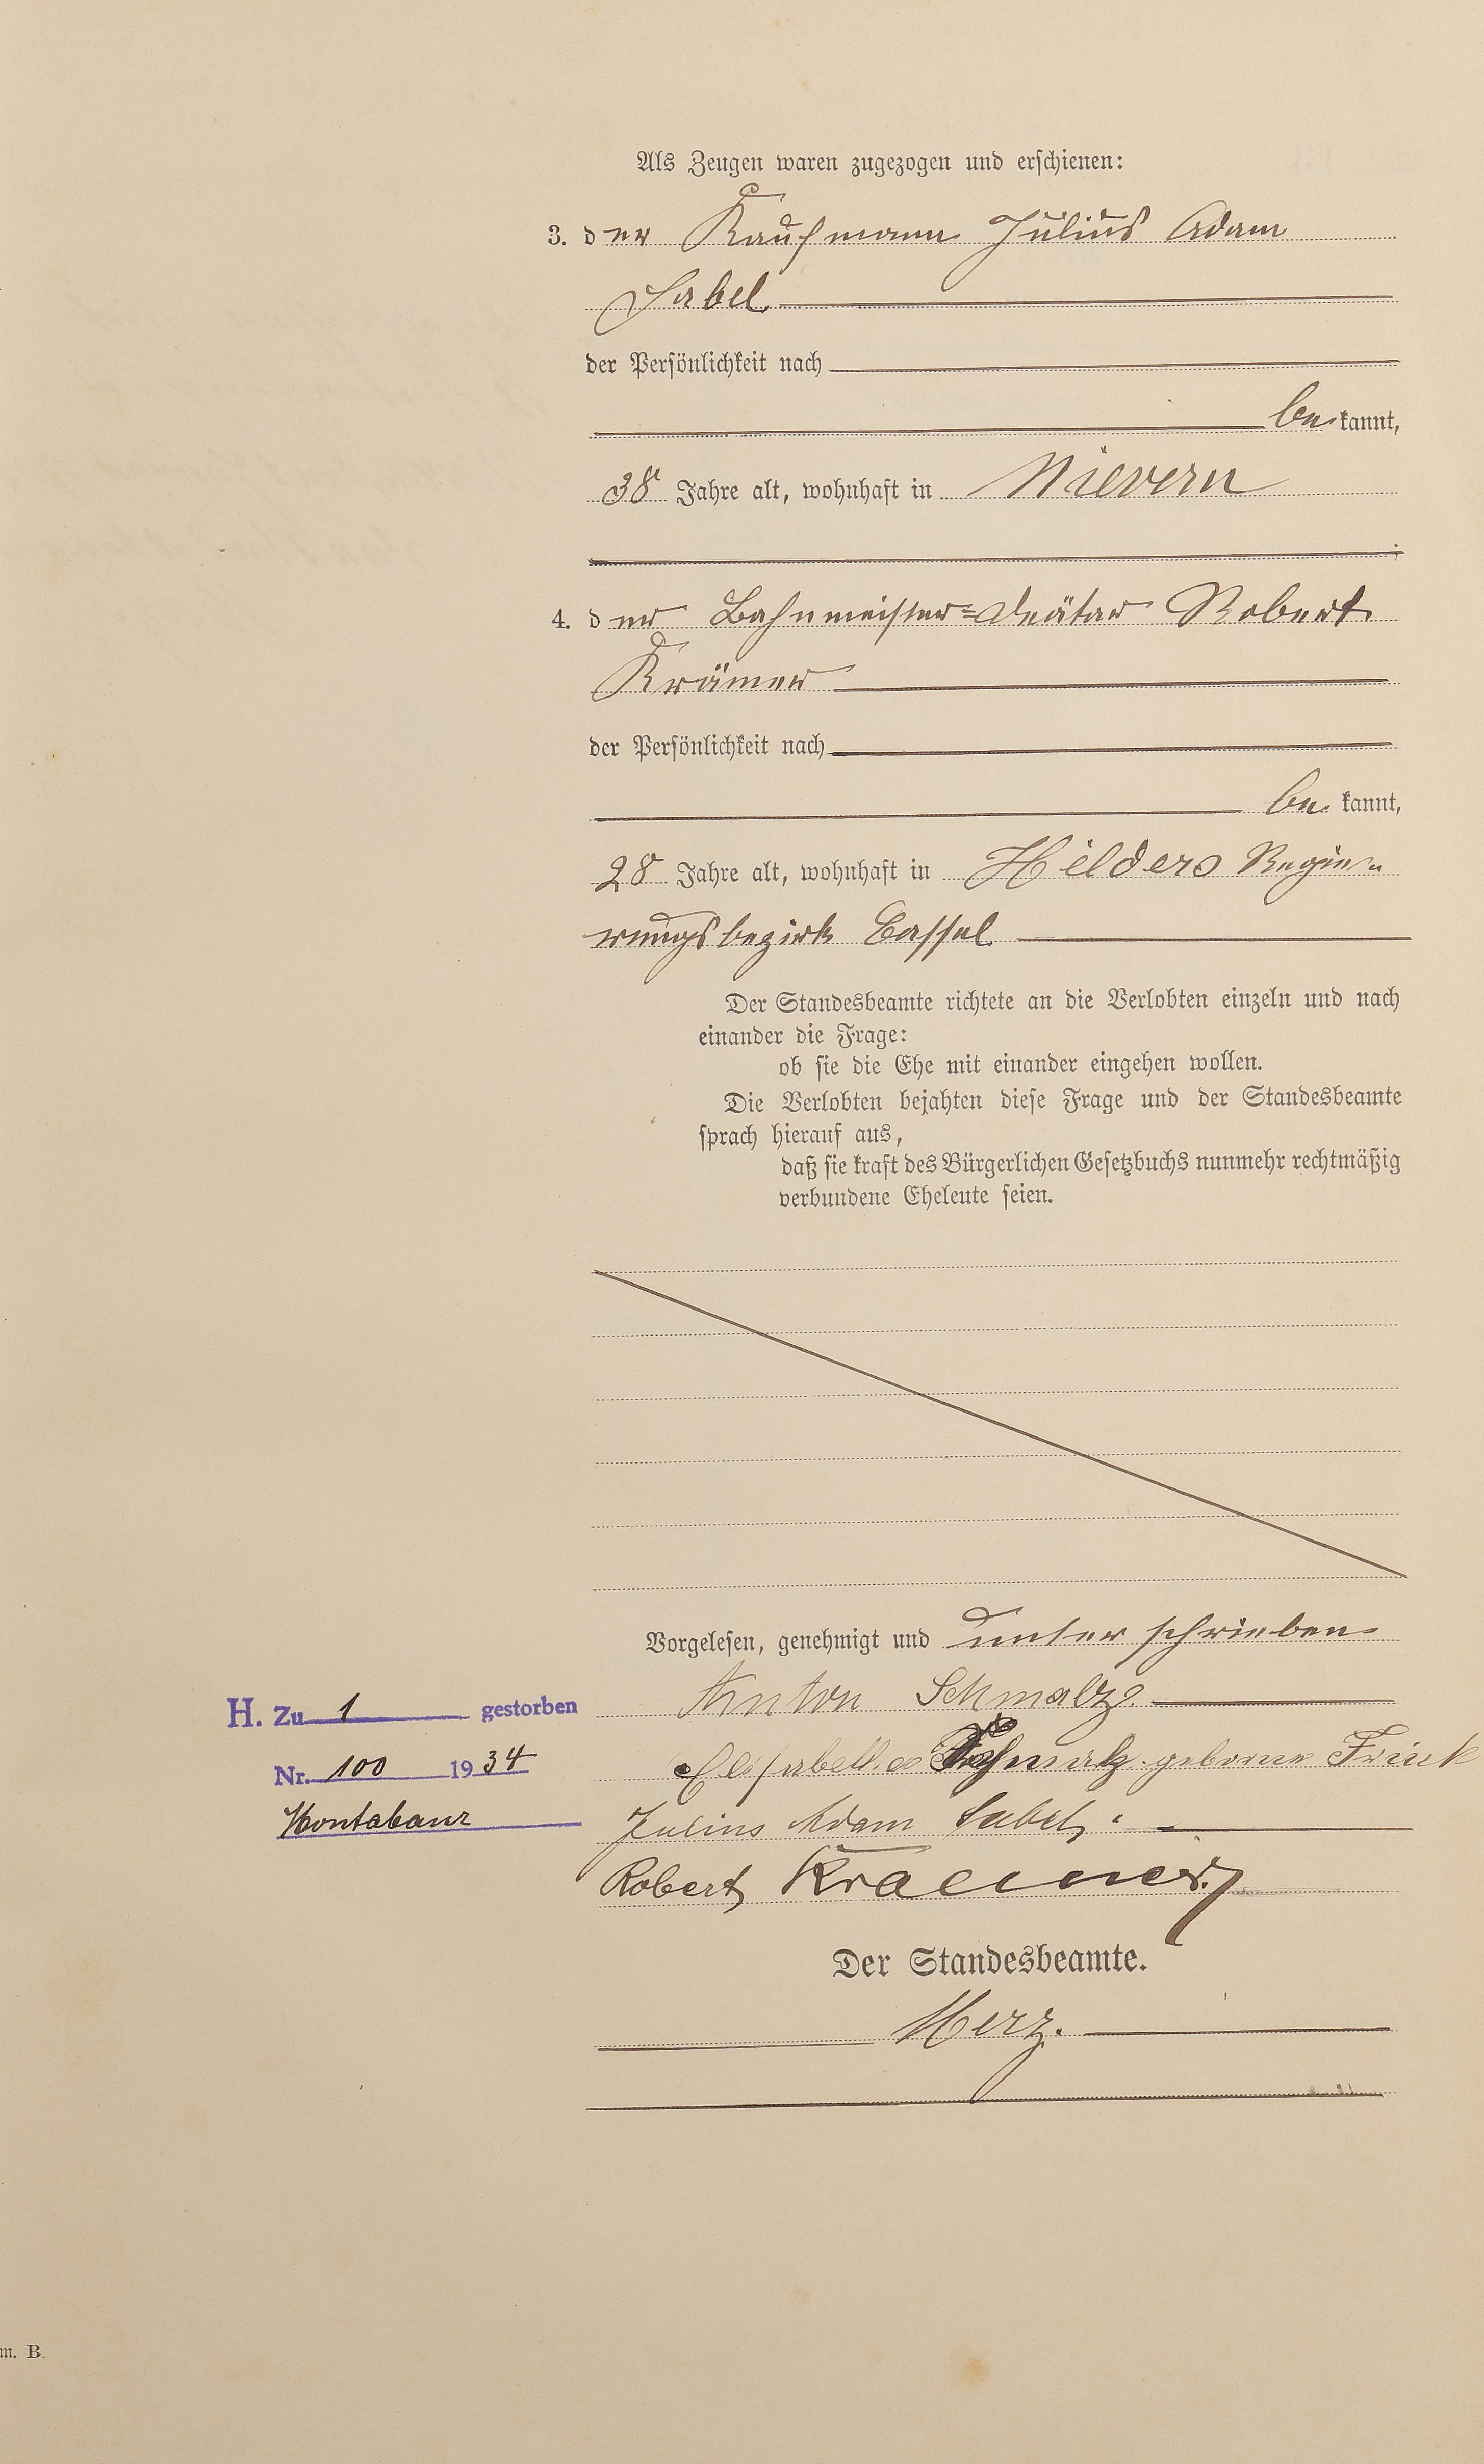 Als Zeugen waren zugezogen und erschienen:
3. der Kaufmann Julius Adam
Sabel
der Persönlichkeit nach
be kannt,
38 Jahre alt, wohnhaft in Nievern
;
4. der Bahnmeister-Diätar Robert
Krämer
der Persönlichkeit nach
be kannt,
28 Jahre alt, wohnhaft in Hilders Regie-
rungsbezirk Cassel
Der Standesbeamte richtete an die Verlobten einzeln und nach
einander die Frage:
ob sie die Ehe mit einander eingehen wollen.
Die Verlobten bejahten diese Frage und der Standesbeamte
sprach hierauf aus,
daß sie kraft des Bürgerlichen Gesetzbuchs nunmehr rechtmäßig
verbundene Eheleute seien.
Vorgelesen, genehmigt und unterschrieben
Anton Schmalz.
Schmalz geborne Frink
Julius Adam Sabel.
Robert Kraemer.
H. Zu 1 gestorben
Nr. 100 1934
Montabaur
Der Standesbeamte.
Merz.
m. B.